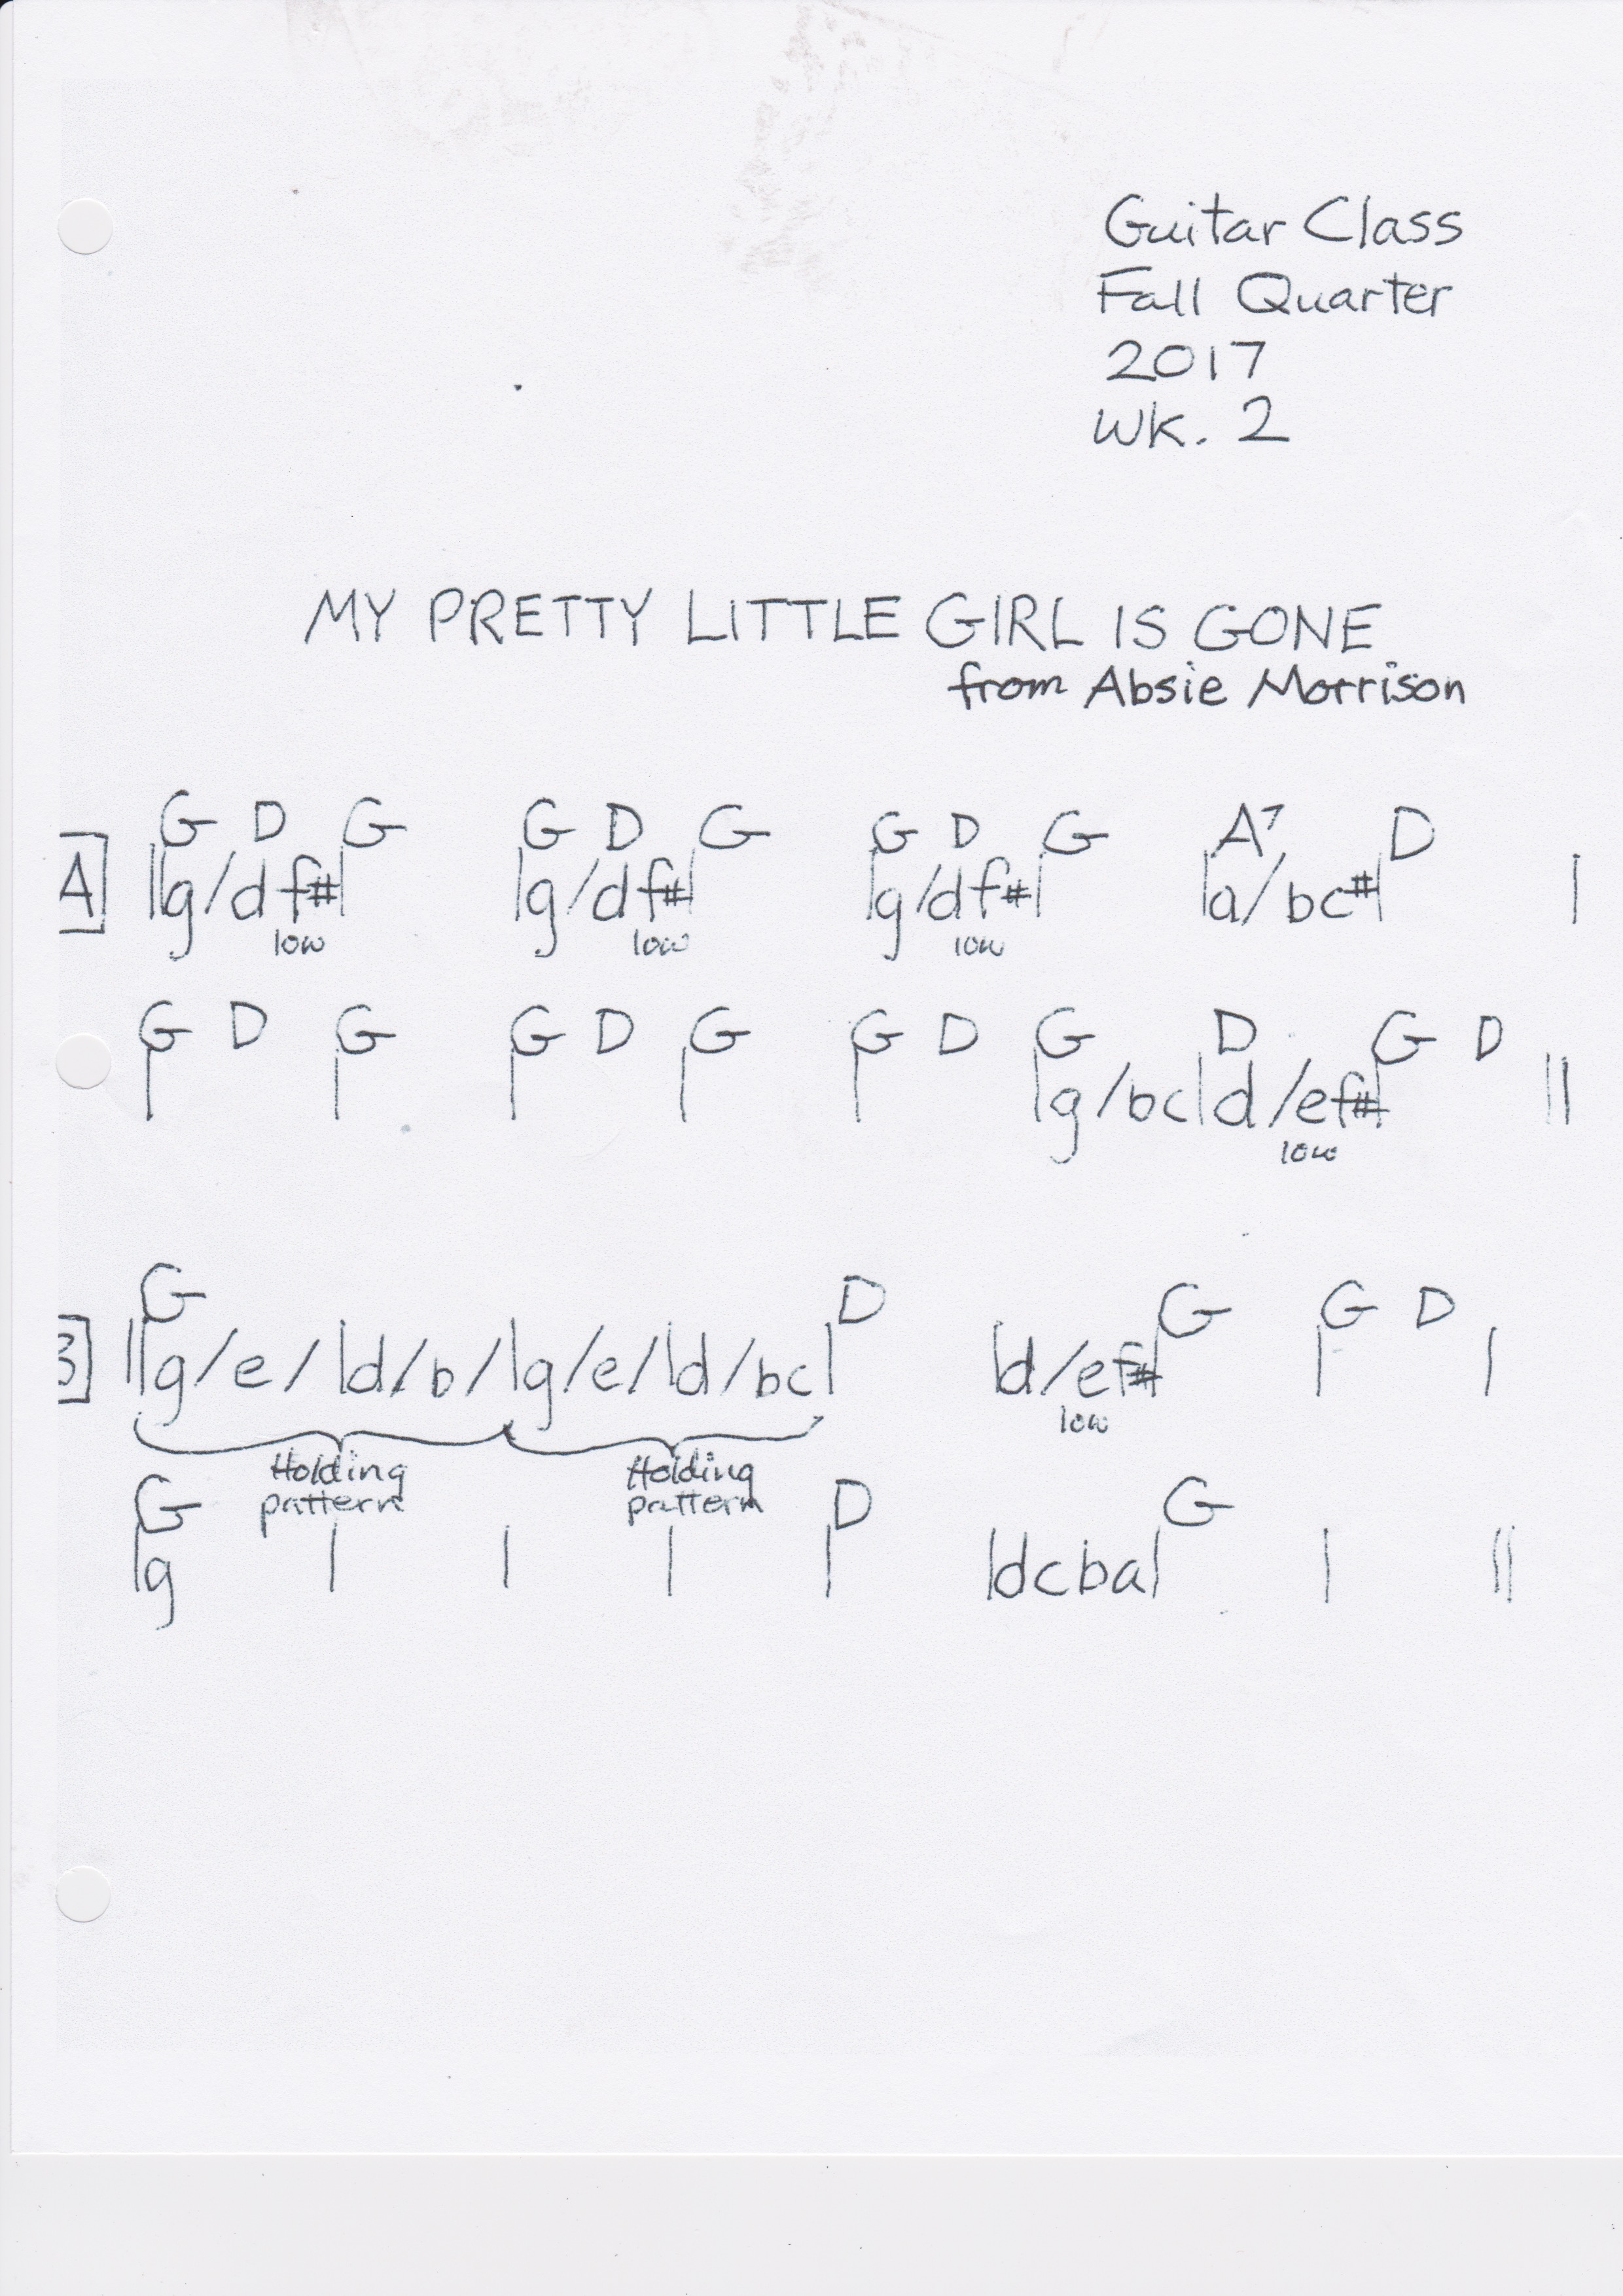 Guitar Class
Fall Quarter
2017
Wk. 2
MY PRETTY LITTLE GIRL IS GONE
from Absie Morrison
G D G G D G G D G A7 D
A ||g/df#| |g/df#| |g/df#| |a/bc#| |
low low low
G D G G D G G D G D G D
| | | | | |g/bc|d/ef#| ||
low
G D G G D
B] ||g/e/|d/b/|g/e/|d/bc| |d/ef#| | |
low
Holding pattern Holding pattern
G D G
|g | | | | |dcba| | ||